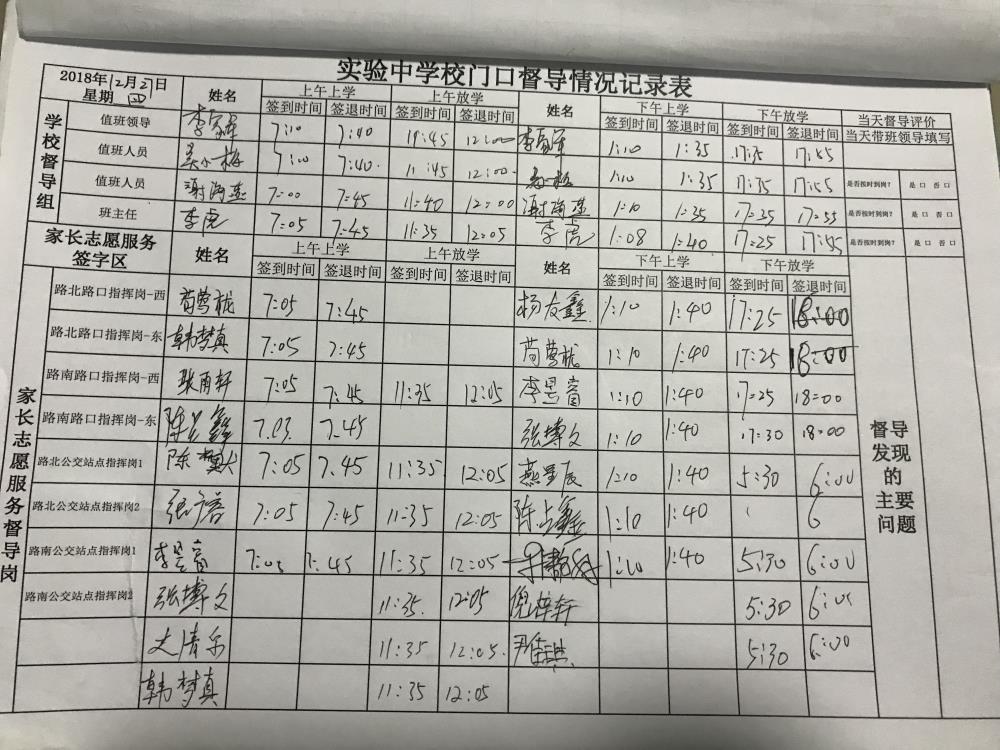 实验中学校门口督导情况记录表
2018年12月27日 星期 四 姓名 上午上学 上午放学 姓名 下午上学 下午放学 当天督导评价
签到时间 签退时间 签到时间 签退时间 签到时间 签退时间 签到时间 签退时间 当天带班领导填写
学校督导组
值班领导 7:10 7:40 11:45 12:00 1:10 1:35 17:35 17:55
值班人员 7:10 7:40 11:45 12:00 1:10 1:35 17:35 17:55 是否按时到岗? 是 口 否 口
值班人员 7:00 7:45 11:40 12:00 1:10 1:35 17:35 17:55 是否按时到岗? 是 口 否 口
班主任 李虎 7:05 7:45 11:35 12:05 李虎 1:08 1:40 17:25 17:55 是否按时到岗? 是 口 否 口
家长志愿服务签字区 姓名 上午上学 上午放学 姓名 下午上学 下午放学
签到时间 签退时间 签到时间 签退时间 签到时间 签退时间 签到时间 签退时间
家长志愿服务督导岗
路北路口指挥岗-西 7:05 7:45 杨友鑫 1:10 1:40 17:25 18:00
路北路口指挥岗-东 韩梦真 7:05 7:45 1:10 1:40 17:25 18:00
路南路口指挥岗-西 张雨轩 7:05 7:45 11:35 12:05 李昱富 1:10 1:40 17:25 18:00
路南路口指挥岗-东 7:03 7:45 张博文 1:10 1:40 17:30 18:00
路北公交站点指挥岗1 7:05 7:45 11:35 12:05 燕星辰 1:10 1:40 5:30 6:00
路北公交站点指挥岗2 7:05 7:45 11:35 12:05 1:10 1:40 6
路南公交站点指挥岗1 李昱富 7:03 7:45 11:35 12:05 1:10 1:40 5:30 6:00
路南公交站点指挥岗2 张博文 11:35 12:05 倪梓轩 5:30 6:05
11:35 12:05 5:30 6:00
韩梦真 11:35 12:05
督导发现的主要问题